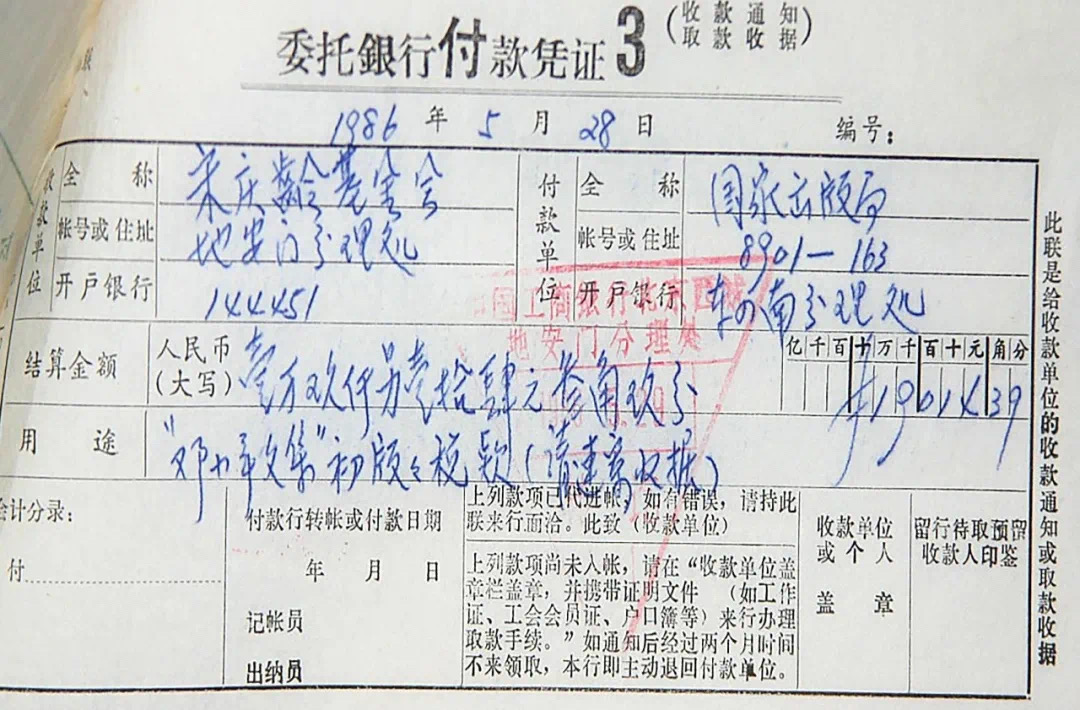 委托銀行付款凭证3(收款通知
取款收据)
1986年5月28日 编号:
收款单位
全称 宋庆龄基金会
帐号或住址 地安门分理处
开户银行 144451
付款单位
全称 国家出版局
帐号或住址 8901—163
开户银行 东四南分理处
工商银行北京
地安门分理处
结算金额
人民币
(大写) 壹万玖仟另壹拾肆元叁角玖分
亿千百十万千百十元角分
¥1901439
用途 "邓小平文集"初版税款(请速寄收据)
会计分录:
付
付款行转帐或付款日期
年 月 日
记帐员
出纳员
上列款项已代进帐,如有错误,请持此
联来行面洽。此致(收款单位)
上列款项尚未入帐,请在“收款单位盖
章栏盖章,并携带证明文件(如工作
证、工会会员证、户口簿等)来行办理
取款手续。”如通知后经过两个月时间
不来领取,本行即主动退回付款单位。
收款单位
或个人
盖章
留行待取预留
收款人印鉴
此联是给收款单位的收款通知或取款收据